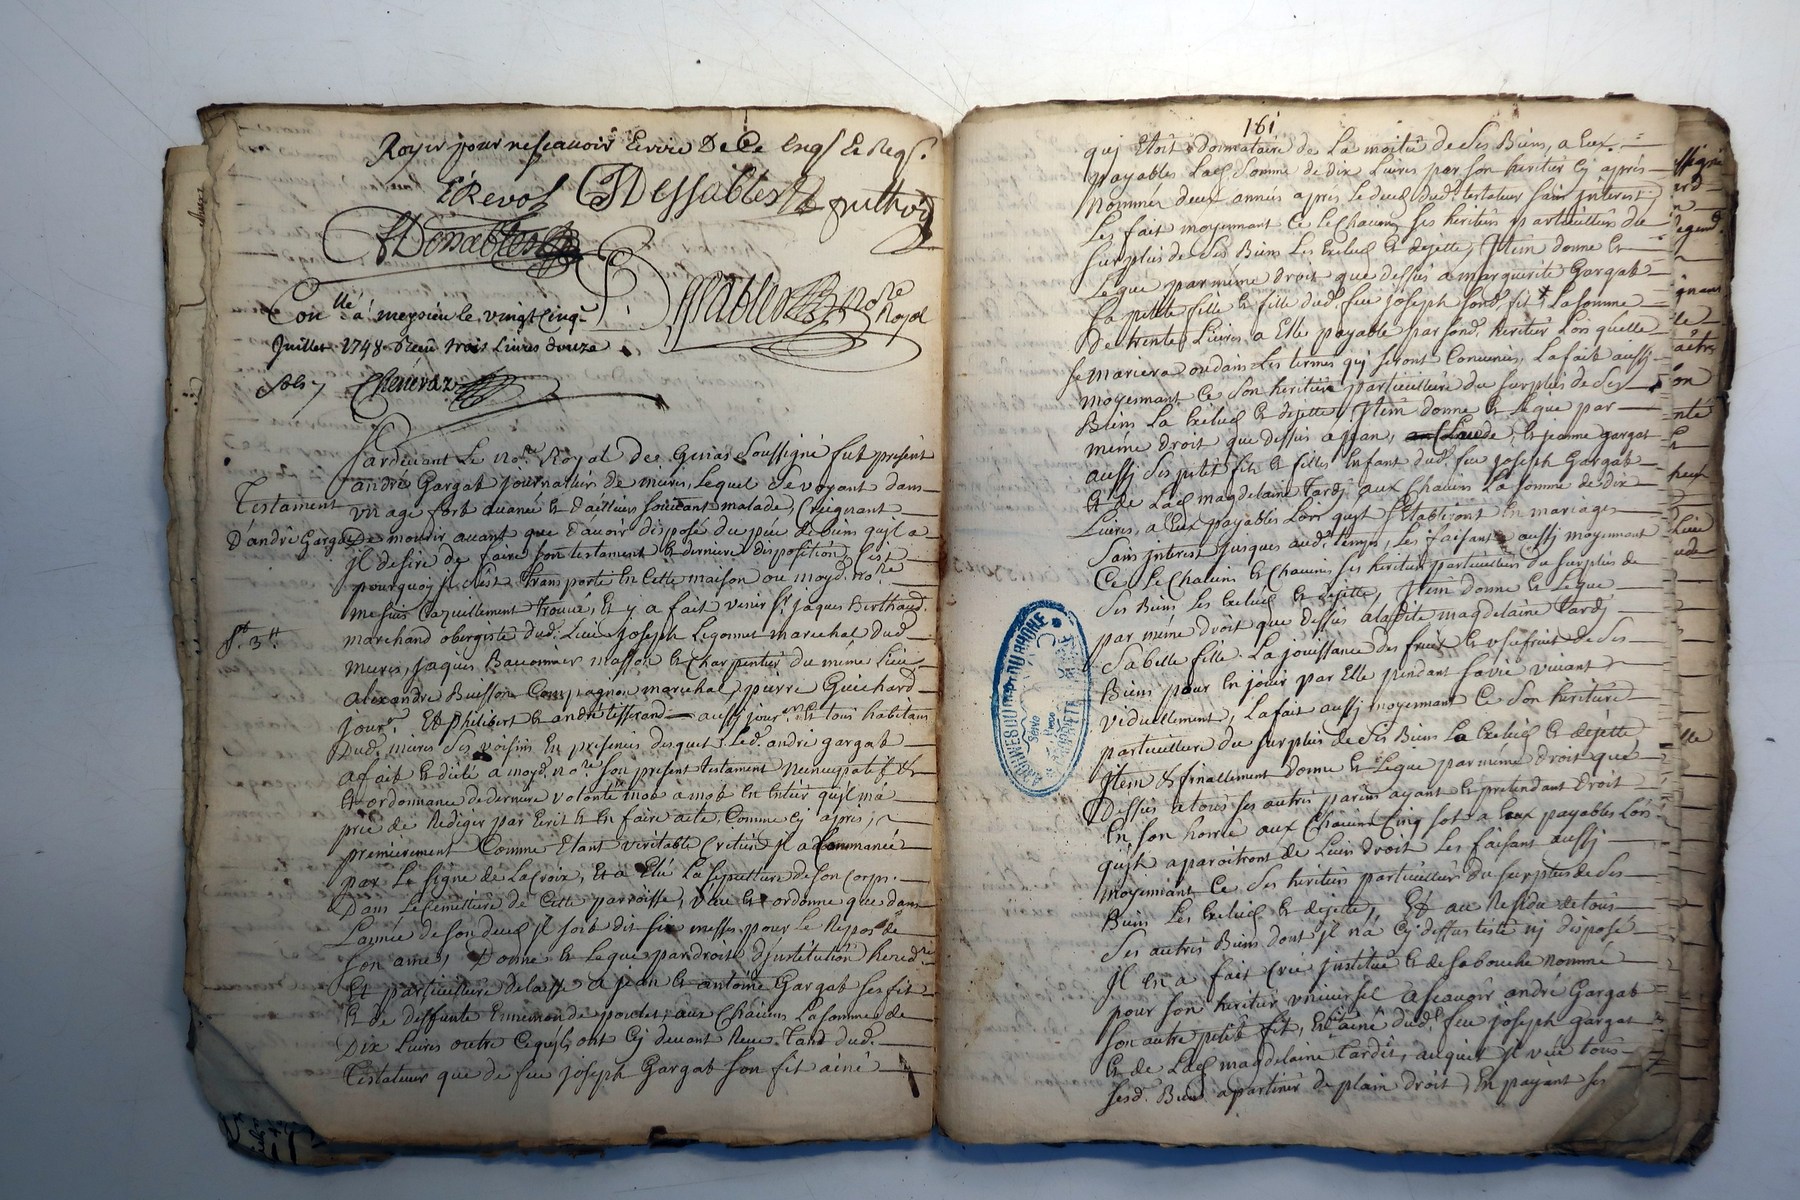 Royer pour ne scavoir Ecrire De Ce Enq. Et Req.
E Revol Dessables Guilhod
ADessables
Dessables No.re Royal
Con.llé á meysieu le vingt cinq
Juillet 1748 Receu trois Livres douze
sols Chenevaz
Pardevant Le No.re Royal de Genas Soussigné fut présent
andré Gargat journalier de mures, Lequel se voyant dans
Testament
D'andré Gargat
un age fort avancé Et d'ailleurs souvant malade, Creignant
De mourir avant que d'avoir disposé du péu de biens qu'il a
jl desire de faire son testament Et derniere disposition, C'est
pourquoy jl s'est transporté En Cette maison ou moyd. no.re
me suis Cazuellement trouvé, Et y a fait venir S.r jaques Berthaud
R. 3.tt
marchand obergiste dud. Lieu, joseph Legonnet marechal dud.
mures, jaques Bauonnier masson Et Charpentier du même Lieu
alexandre Buisson Compagnon marechal, pierre Guichard
jour.r Et philibert Et andré tisserand aussy jour.rs Et tous habitans
Dud. mures Ses voisins En presences desquels Led. andré gargat
a fait Et dicté a moyd. no.re son present testament Nuncupatif Et
Et ordonnance de derniere volonté mot a mot En Entier qu'il m'a
prié de Rediger par Ecrit Et En faire acte, Comme Cy après,
premierement Comme Etant veritable Cretien jl a Commancé
par Le signe de La Croix, Et a Elû La sepulture de son Corps
Dans Le semittiere de Cette parroisse, veut Et ordonne que dans
L'année de son deces jl soit dit six messes pour Le Repos de
son ame, Donne Et Legue par droit d'justitution hered.re
Et particulliere delaisse a jean Et antoine Gargat ses fils
Et de deffunte Ennemonde poulet, aux Chacuns La somme de
Dix Livres outre Ce qu'ils ont Cy devant Receu Tand dud.
Testateur que de feu joseph Gargat son fils ainé
161
quj Etoit donnataire de La moitié de Ses Biens, a Eux
payables Lad. somme de dix Livres par son heritier Cy après
Nommé deux années après Le deces dud. testateur sans jnterest
Les fait moyennant Ce Le Chacuns Ses heritiers particulliers du
surplus de Ses Biens Les Exclud Et dejette, Jtem donne Et
Legue par même droit que dessus a marguerite Gargat
sa petite fille Et fille dud. feu joseph sond. fils La somme
De trente Livres a Elle payable par sond. heritier Lors qu'elle
se mariera ou dans Les termes quj seront Convenus, La fait aussj
moyennant Ce Son heritiere particulliere du surplus de Ses
Biens La Exclud Et dejette, Jtem donne Et Legue par
même droit que dessus a jean, Claude, Et jeanne gargat
aussj Ses petit fils Et filles Enfant dud. feu joseph Gargat
Et de Lad. magdelaine tardj aux Chacuns La somme de dix
Livres, a Eux payables Lors qu'jls s'Etabliront En mariages
Sans jnterest jusques aud. temps, Les faisant aussj moyennant
Ce Le Chacuns Et Chacunes Ses heritiers particulliers du surplus de
Ses Biens Les Exclud Et dejette, Jtem donne Et Legue
par même droit que dessus a ladite magdelaine tardj
Sa belle fille La jouissance des fruit Et usufruit de Ses
Biens pour En jouir par Elle pendant sa vie vivant
viduellement, La fait aussj moyennant Ce Son heritiere
particulliere du surplus de Ses Biens La Exclud Et dejette
Jtem & finallement donne Et Legue par même droit que
Dessus a tous Ses autres parens ayant Et pretendant droit
En son hoirie aux Chacuns Cinq sols a Eux payables Lors
qu'jls aparoitront de Leurs droit Les faisant aussj
moyennant Ce Ses heritiers particulliers du surplus de Ses
Biens Les Exclud Et dejette, Et au Residu de tous
Ses autres Biens dont jl n'a Cy dessus testé nj disposé
Jl En a fait Créé justitué Et de Sa bouche nommé
pour son heritier universel a scavoir andré Gargat
Son autre petit fils, Et fils ainé dud. feu joseph gargat
Et de Lad. magdelaine Tardit, auquel jl veut tous
Sesd. Biens apartenir de plain droit, En payant Ses
ARCHIVES DU DEPT DU RHONE
PROPRIETE PUBLIQUE